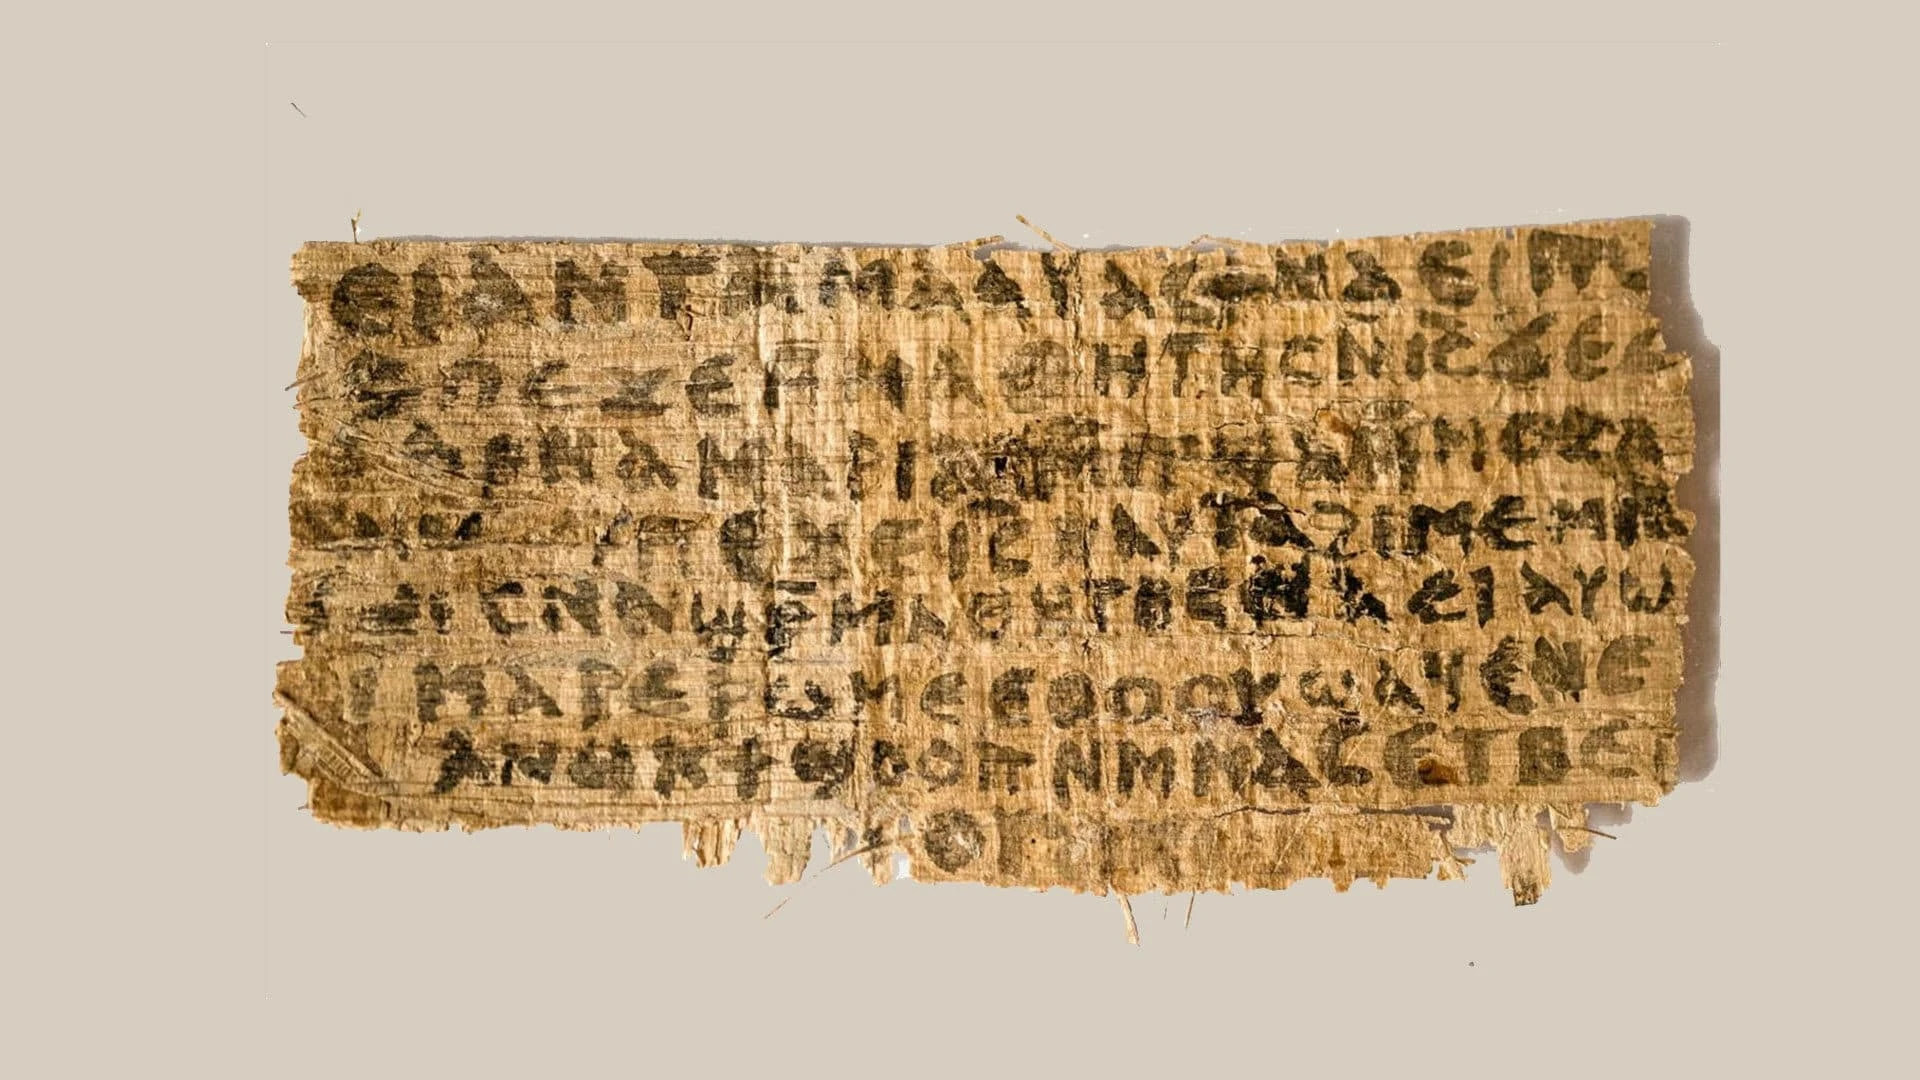 ⲉⲓⲁⲛⲧⲁⲙⲁⲁⲩⲁⲥϯⲛⲁⲉⲓⲡ
ⲥⲡⲉϫⲉⲙⲙⲁⲑⲏⲧⲏⲥⲛⲓ̅ⲥ̅ϫⲉⲥ
ⲁⲣⲛⲁⲙⲁⲣⲓⲁⲙⲙⲡϣⲁⲙⲙⲟⲥⲁ
ⲡⲉϫⲉⲓ̅ⲥ̅ⲛⲁⲩⲧⲁϩⲓⲙⲉⲙⲛ
ⲥⲛⲁϣⲣ̅ⲙⲁⲑⲏⲧⲏⲥⲛⲁⲉⲓⲁⲩⲱ
ⲓⲙⲁⲣⲉⲣⲱⲙⲉⲉⲑⲟⲟⲩϣⲁϥⲉⲛⲉ
ⲁⲛⲟⲕϯϣⲟⲟⲡⲛⲙⲙⲁⲥⲉⲧⲃⲉ